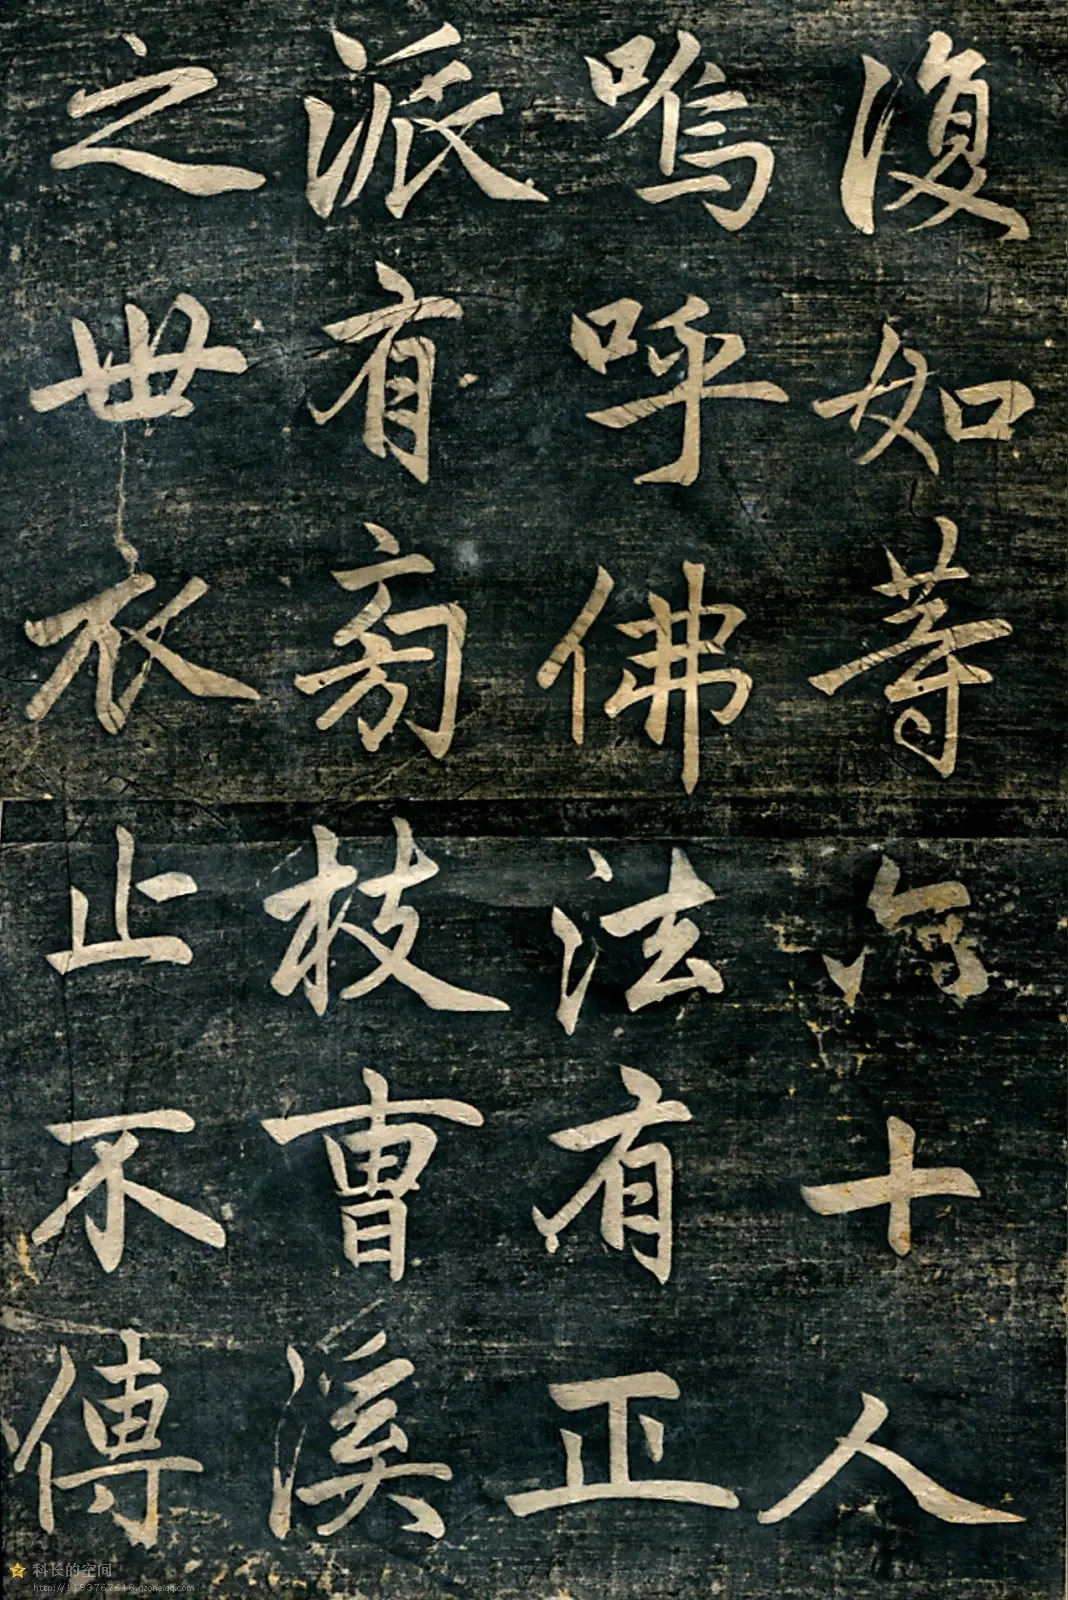 復如等十人
嗚呼佛法有正
派有旁枝曹溪
之世衣止不傳
科长的空间
http://1193767618.qzone.qq.com